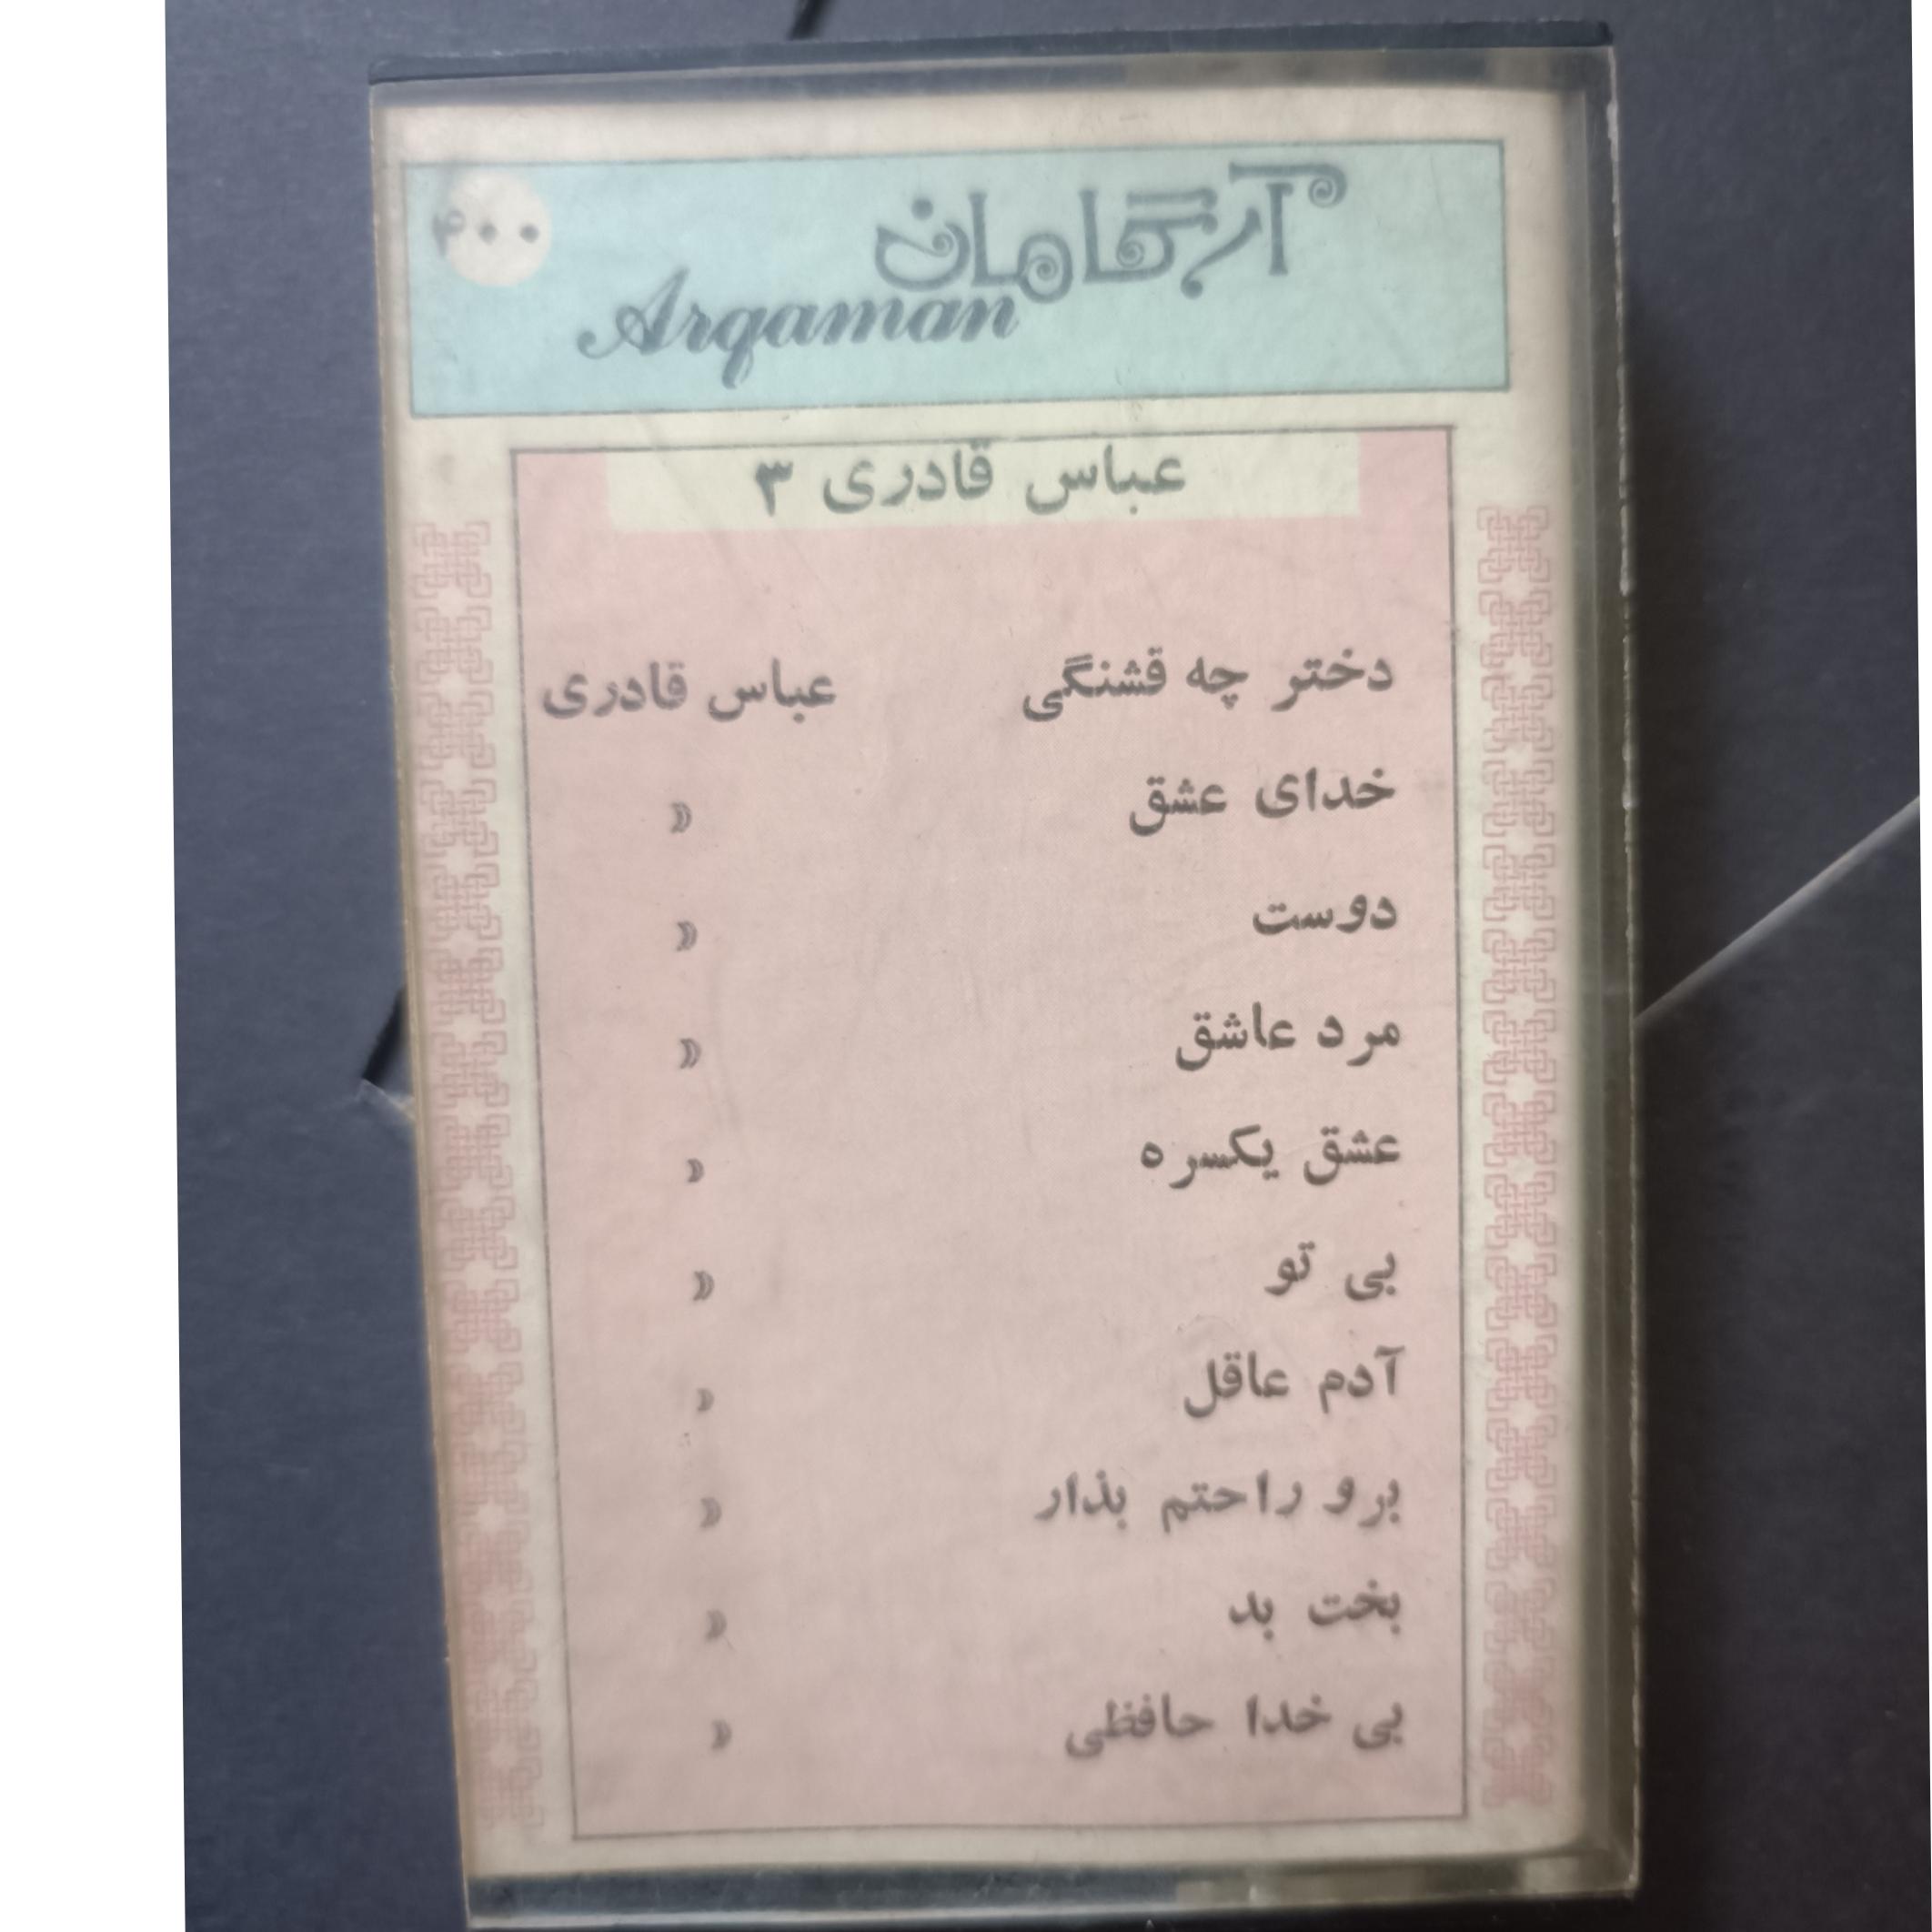 ۴۰۰
آرگامان
Arqaman
عباس قادری ۳
دختر چه قشنگی عباس قادری
خدای عشق «
دوست «
مرد عاشق «
عشق یکسره «
بی تو «
آدم عاقل «
برو راحتم بذار «
بخت بد «
بی خدا حافظی «